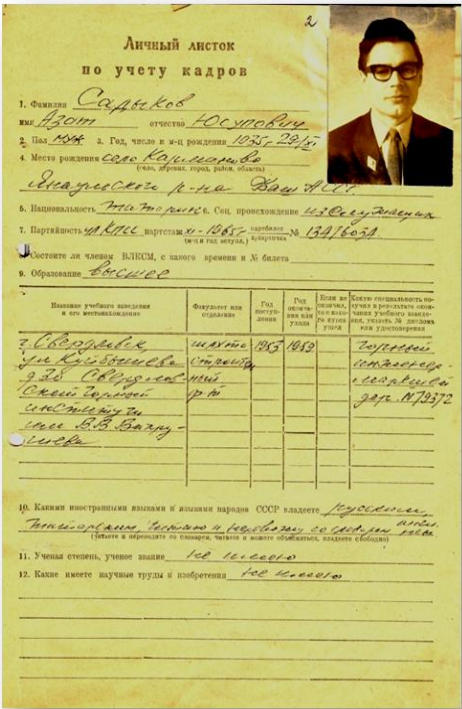 2
Личный листок
по учету кадров
1. Фамилия Садыков
имя Азат отчество Юсупович
2. Пол муж 3. Год, число и м-ц рождения 1935, 29/XI
4. Место рождения село Карманово
(село, деревня, город, район, область)
Янаульского р-на Баш АССР
5. Национальность татарин 6. Соц. происхождение из служащих
7. Партийность чл КПСС партстаж XI-1965г партбилет № 13476034
кандкарточка
(м-ц и год вступл.)
8. Состоите ли членом ВЛКСМ, с какого времени и № билета
9. Образование высшее
Название учебного заведения и его местонахождение
Факультет или отделение
Год поступления
Год окончания или ухода
Если не окончил, то с какого курса ушел
Какую специальность получил в результате окончания учебного заведения, указать № диплома или удостоверения
г. Свердловск шахто 1953 1959 горный
ул Куйбышева строител инженер-
д 30 Свердлов- ный маркшей
ский горный ф-т дип. N
институт
им В.В. Вахру-
шева
10. Какими иностранными языками и языками народов СССР владеете русским,
татарским, читаю и перевожу со словарем
(читаете и переводите со словарем, читаете и можете объясняться, владеете свободно)
11. Ученая степень, ученое звание не имею
12. Какие имеете научные труды и изобретения не имею